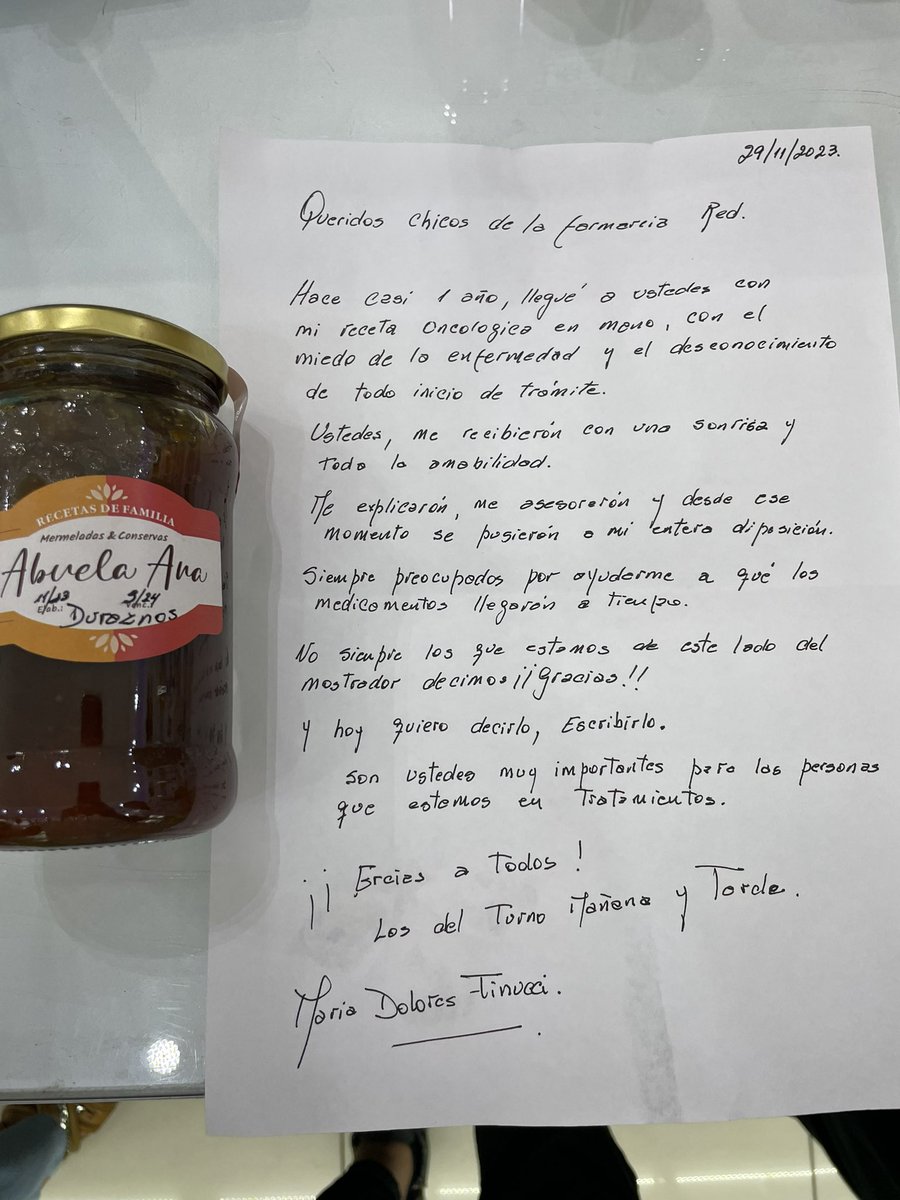 29/11/2023.
Queridos chicos de la farmarcia Red.
Hace casi 1 año, llegué a ustedes con
mi receta Oncologica en mano, con el
miedo de la enfermedad y el desconocimiento
de todo inicio de trámite.
Ustedes, me recibierón con una sonrisa y
toda la amabilidad.
Me explicarón, me asesorarón y desde ese
momento se pusierón a mi entera disposición.
Siempre preocupados por ayudarme a qué los
medicamentos llegarán a tiempo.
No siempre los que estamos de este lado del
mostrador decimos ¡¡Gracias!!
Y hoy quiero decirlo, Escribirlo.
son ustedes muy importantes para las personas
que estamos en Tratamientos.
¡¡ Grcias a Todos !
Los del Turno Mañana y Tarde.
Maria Dolores Finucci.
RECETAS DE FAMILIA
Mermeladas & Conservas
Abuela Ana
11/23 9/24
Elab.: Venc.:
Duraznos